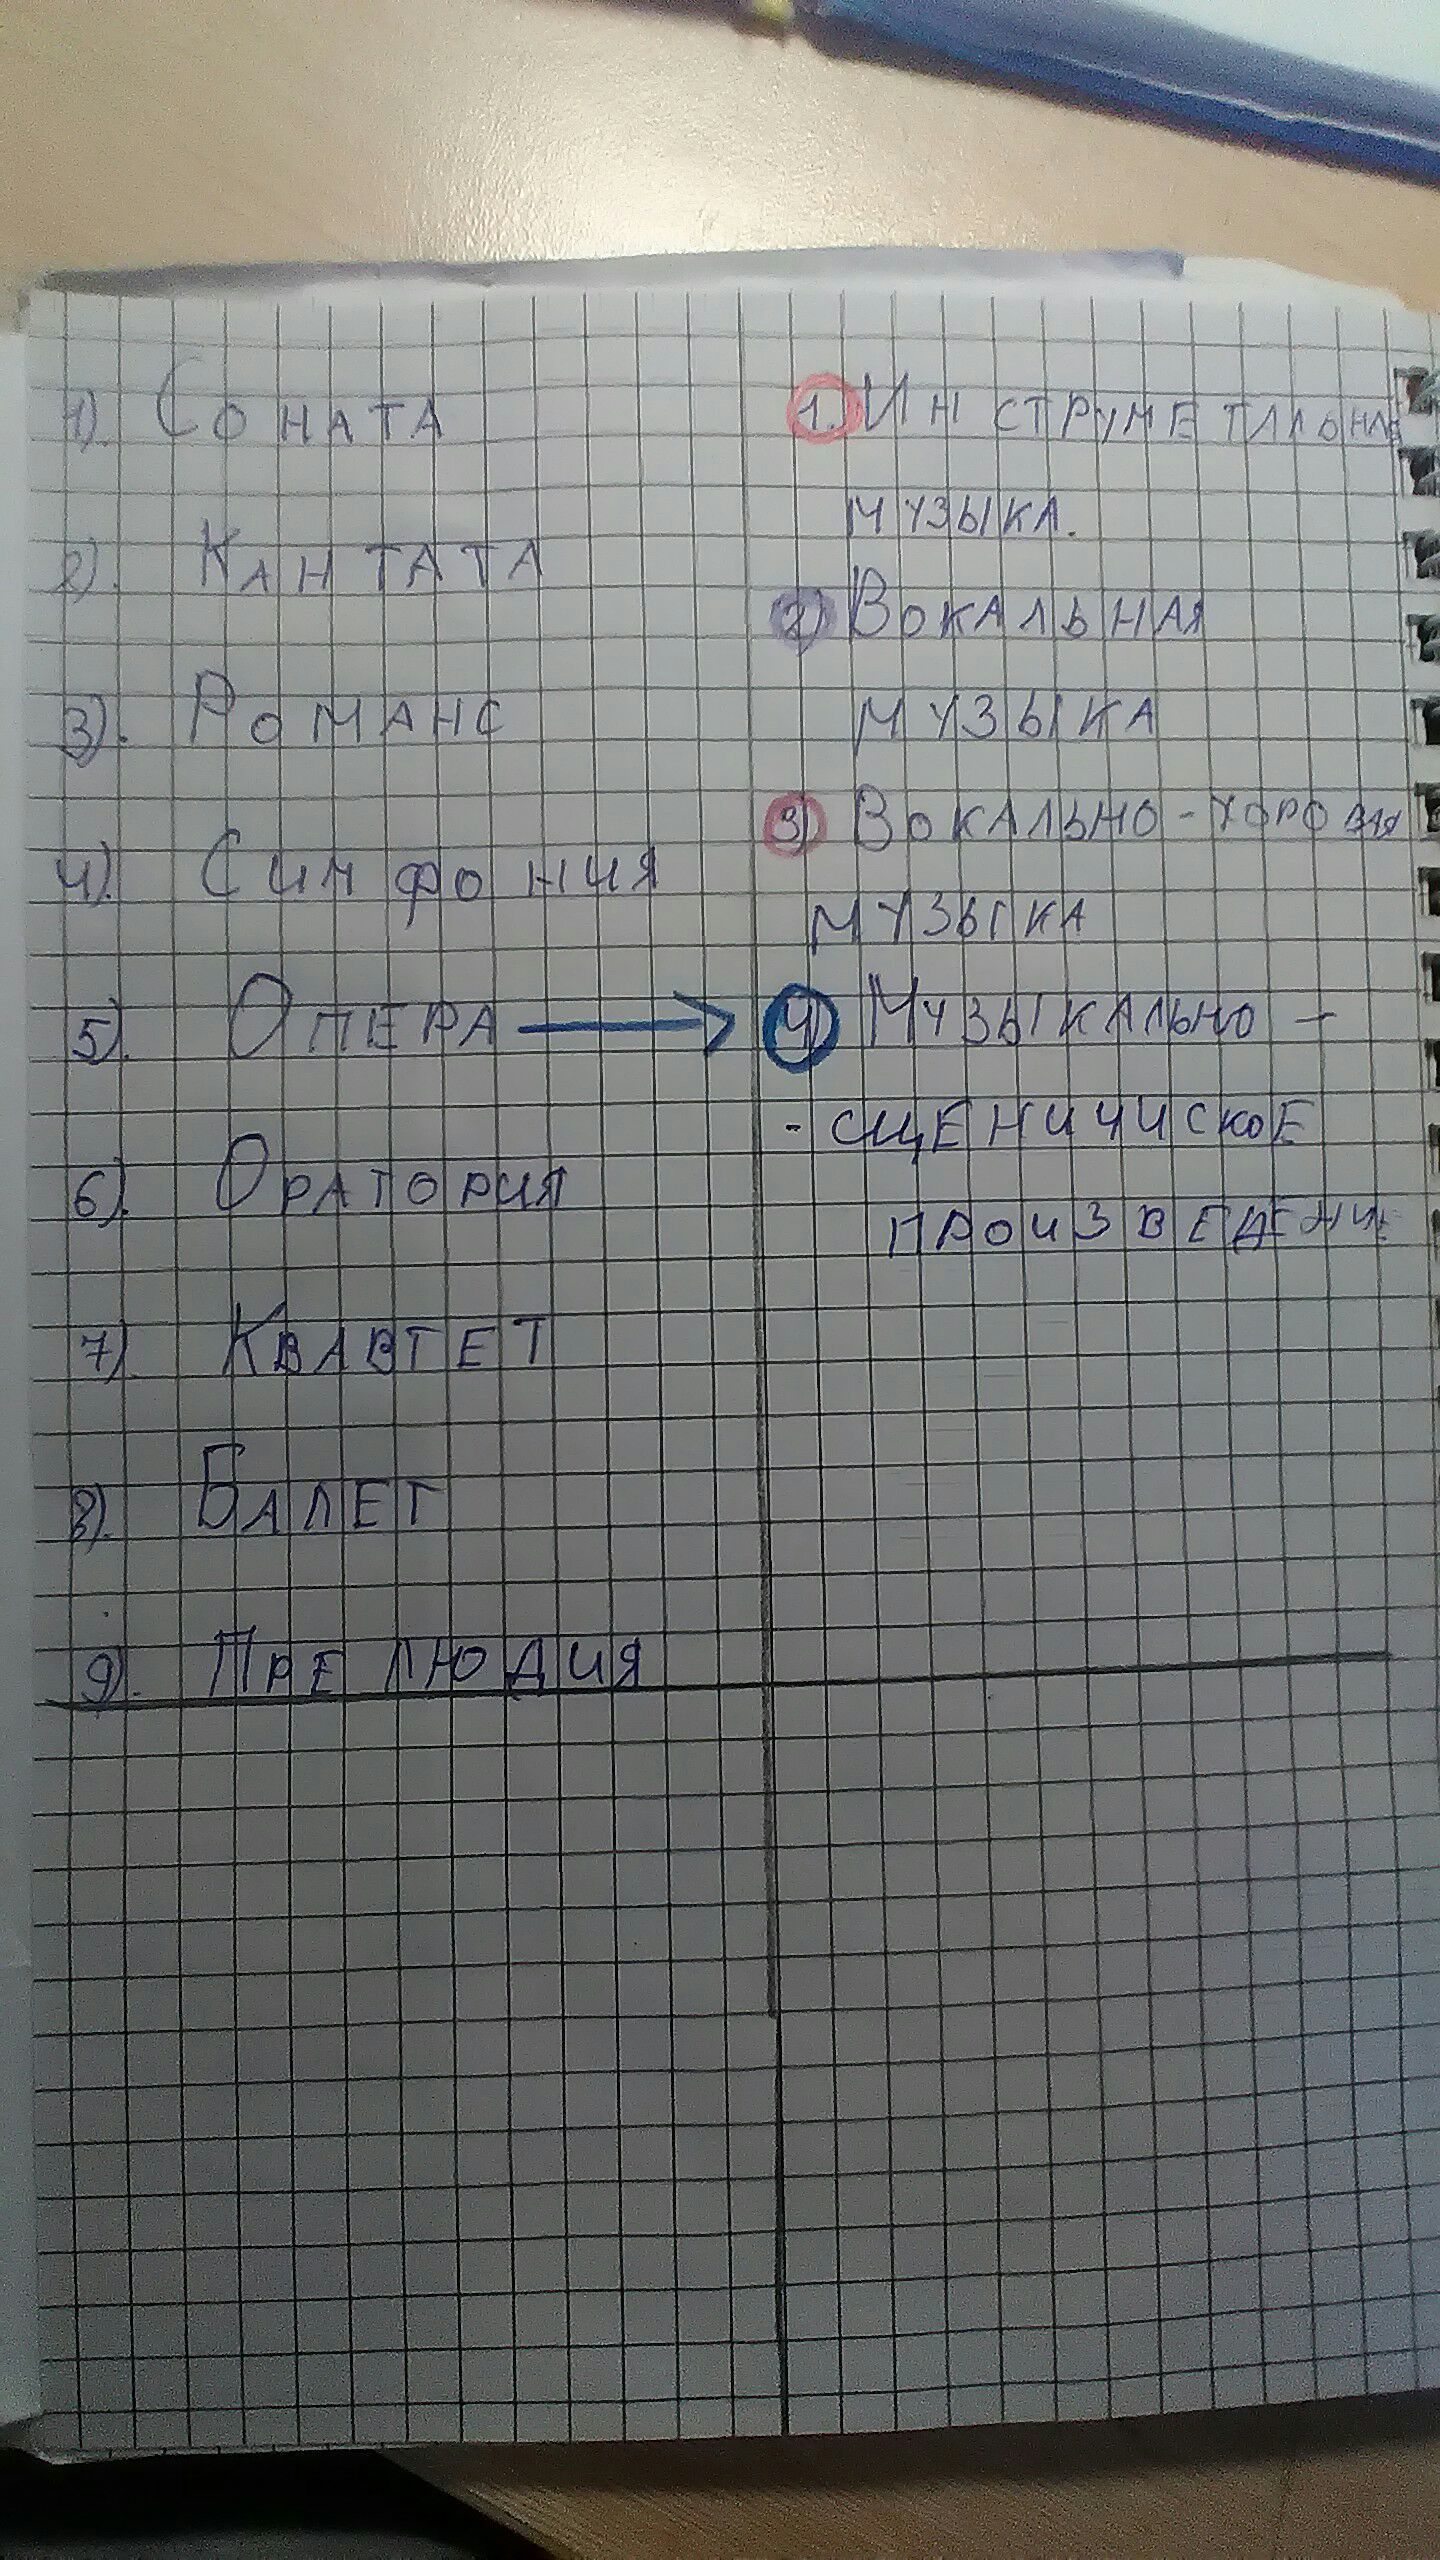 1). Соната
2). Кантата
3). Романс
4). Симфония
5). Опера
6). Оратория
7). Квавтет
8). Балет
9). Прелюдия
1. Инструметальная
музыка.
2) Вокальная
музыка
3) Вокально-хоровая
музыка
4) Музыкально -
- сценичиское
произведение